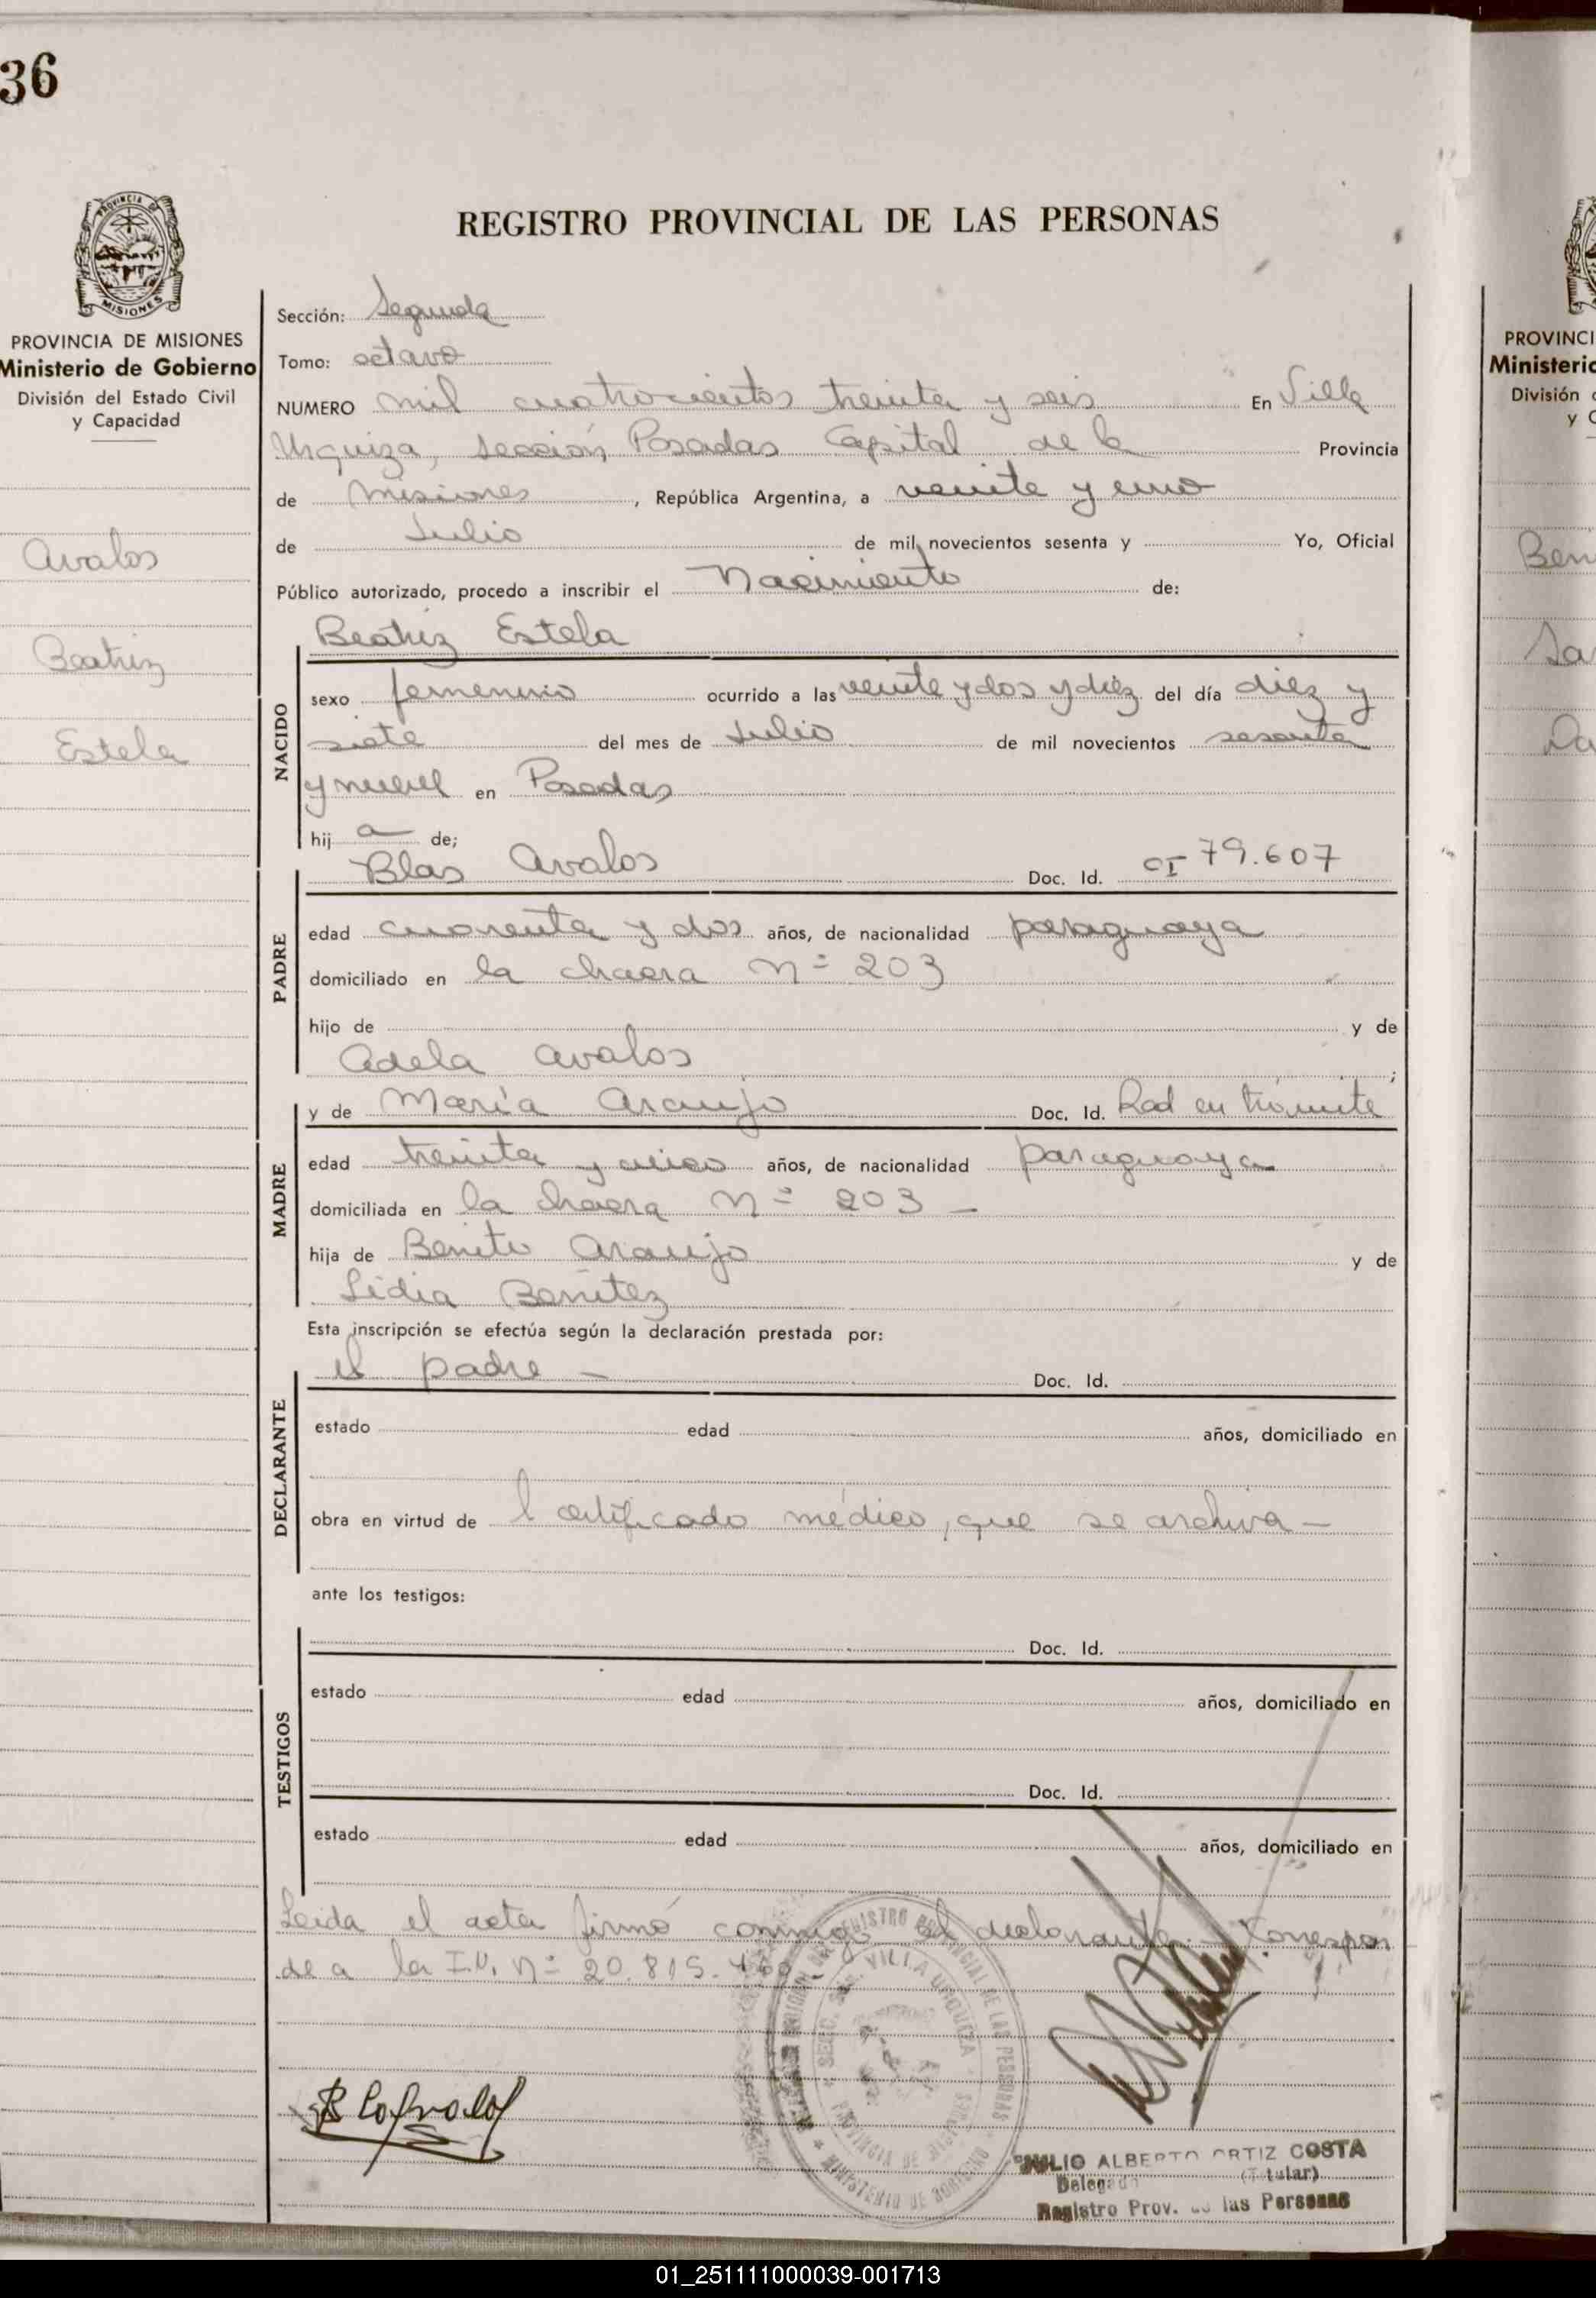 36
PROVINCIA DE MISIONES
Ministerio de Gobierno
División del Estado Civil
y Capacidad
Avalos
Beatriz
Estela
REGISTRO PROVINCIAL DE LAS PERSONAS
Sección: Segunda
Tomo: octavo
NUMERO mil cuatrocientos treinta y seis En Villa
Urquiza, sección Posadas Capital de la Provincia
de Misiones, República Argentina, a veinte y uno
de Julio de mil novecientos sesenta y Yo, Oficial
Público autorizado, procedo a inscribir el Nacimiento de:
Beatriz Estela
NACIDO
sexo femenino ocurrido a las veinte y dos y diez del día diez y
siete del mes de Julio de mil novecientos sesenta
y nueve en Posadas
hij a de;
Blas Avalos Doc. Id. CI 79.607
PADRE
edad cuarenta y dos años, de nacionalidad paraguaya
domiciliado en la chacra nº 203
hijo de y de
Adela Avalos;
y de María Araujo Doc. Id. Rad en trámite
MADRE
edad treinta y cinco años, de nacionalidad paraguaya
domiciliada en la chacra nº 203 -
hija de Benito Araujo y de
Lidia Benítez
Esta inscripción se efectúa según la declaración prestada por:
el padre - Doc. Id.
DECLARANTE
estado edad años, domiciliado en
obra en virtud de l certificado médico, que se archiva -
ante los testigos:
Doc. Id.
TESTIGOS
estado edad años, domiciliado en
Doc. Id.
estado edad años, domiciliado en
Leida el acta firmó conmigo el declarante. - Correspon
de a la I.N. nº 20.815.
Blas Avalos
REGISTRO PROVINCIAL DE LAS PERSONAS
SECC. VILLA URQUIZA
PROVINCIA DE
MINISTERIO DE GOBIERNO
JULIO ALBERTO ORTIZ COSTA
Delegado (Titular)
Registro Prov. de las Personas
PROVINCI
Ministerio
División
y C
Ben
01_251111000039-001713